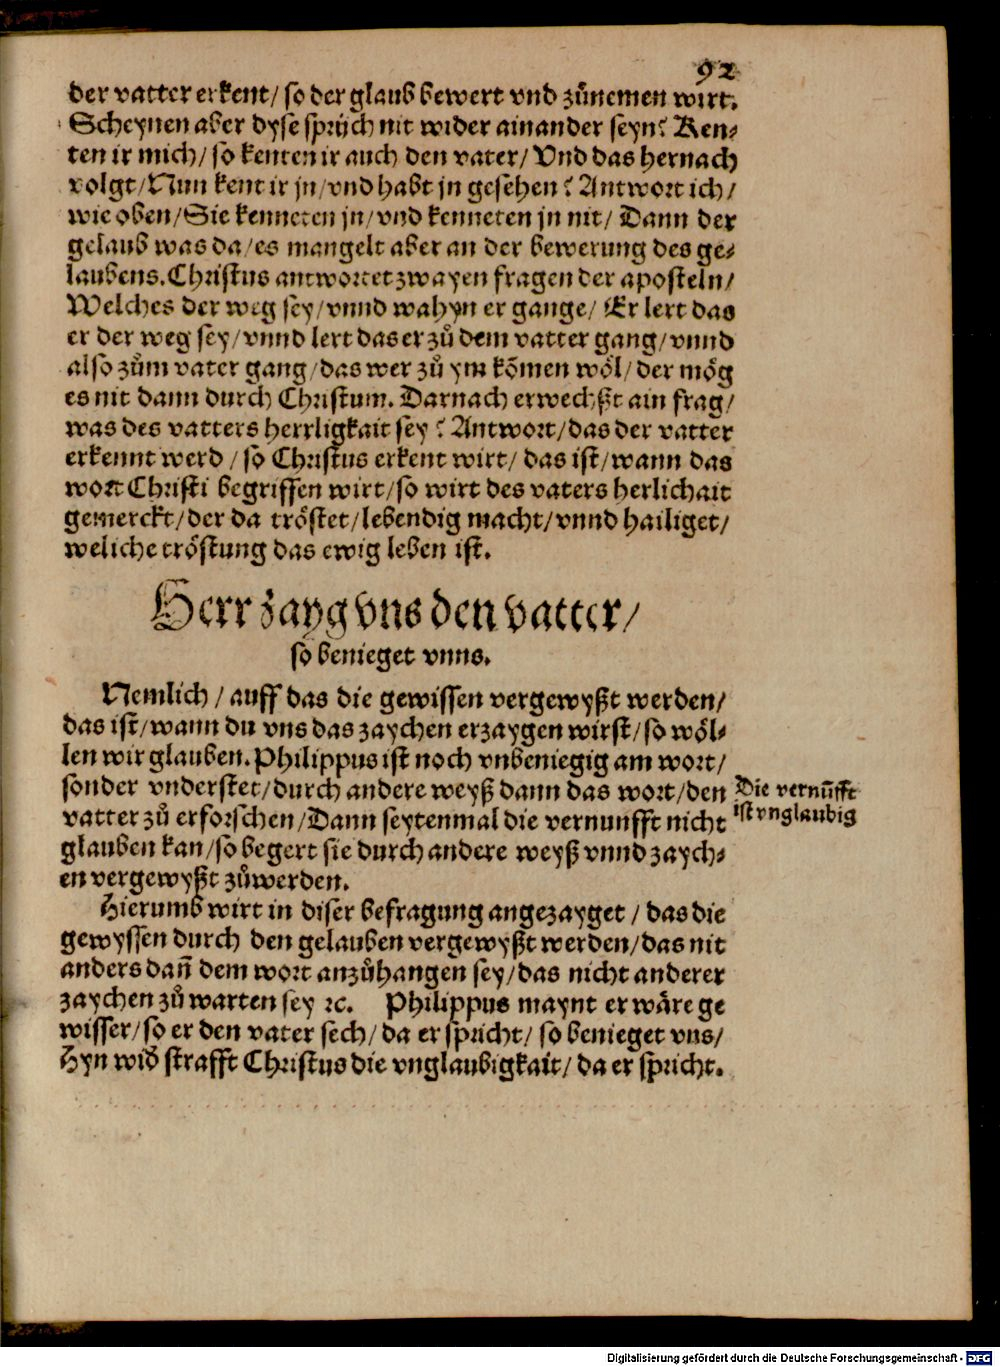 92
der vatter erkent/ so der glaub bewert vnd zůnemen wirt.
Scheynen aber dyse sprüch nit wider ainander seyn? Ken⸗
ten ir mich/ so kenten ir auch den vater/ Vnd das hernach
volgt/ Nun kent ir jn/ vnd habt jn gesehen? Antwort ich/
wie oben/ Sie kenneten jn/ vnd kenneten jn nit/ Dann der
gelaub was da/ es mangelt aber an der bewerung des ge⸗
laubens. Christus antwortet zwayen fragen der aposteln/
Welches der weg sey/ vnnd wahyn er gange/ Er lert das
er der weg sey/ vnnd lert das er zů dem vatter gang/ vnnd
also zům vater gang/ das wer zů ym kõmen wöl/ der mög
es nit dann durch Christum. Darnach erwechßt ain frag/
was des vatters herrligkait sey? Antwort/ das der vatter
erkennt werd/ so Christus erkent wirt/ das ist/ wann das
wort Christi begriffen wirt/ so wirt des vaters herlichait
gemerckt/ der da tröstet/ lebendig macht/ vnnd hailiget/
weliche tröstung das ewig leben ist.
Herr zayg vns den vatter/
so benieget vnns.
Nemlich/ auff das die gewissen vergewyßt werden/
das ist/ wann du vns das zaychen erzaygen wirst/ so wöl⸗
len wir glauben. Philippus ist noch vnbeniegig am wort/
sonder vnderstet/ durch andere weyß dann das wort/ den
vatter zů erforschen/ Dann seytenmal die vernunfft nicht
glauben kan/ so begert sie durch andere weyß vnnd zaych⸗
en vergewyßt zůwerden.
Die vernũfft
ist vnglaubig
Hierumb wirt in diser befragung angezayget/ das die
gewyssen durch den gelauben vergewyßt werden/ das nit
anders dañ dem wort anzůhangen sey/ das nicht anderer
zaychen zů warten sey ꝛc. Philippus maynt er wäre ge
wisser/ so er den vater sech/ da er spricht/ so benieget vns/
Hyn wid̃ strafft Christus die vnglaubigkait/ da er spricht.
Digitalisierung gefördert durch die Deutsche Forschungsgemeinschaft - DFG